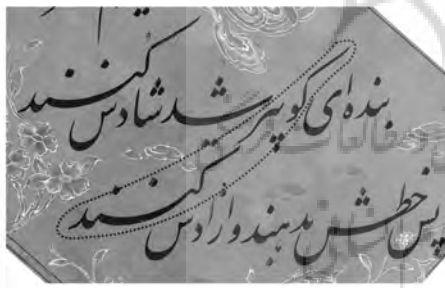 بنده ای کو پیر شد شادش کنند
پس خطش بدهند و ازادش کنند